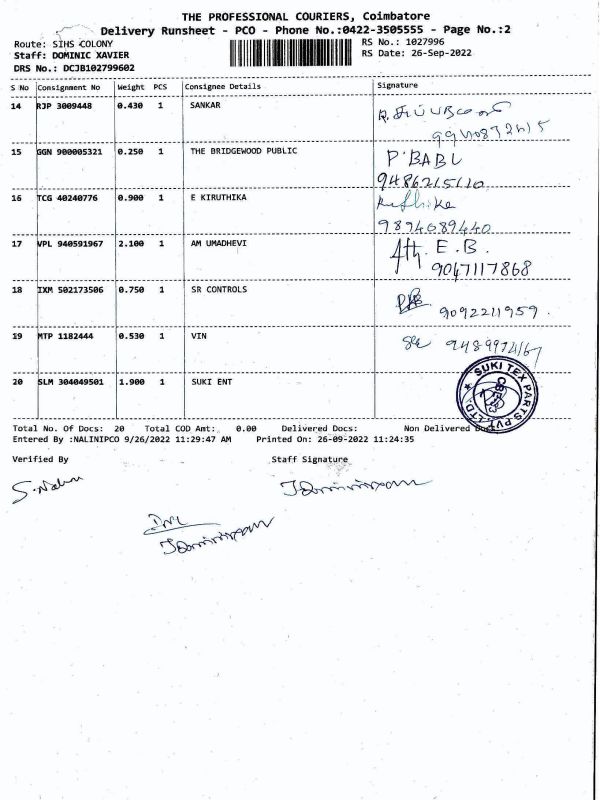 THE PROFESSIONAL COURIERS, Coimbatore
Delivery Runsheet - PCO - Phone No.:0422-3505555 - Page No.:2
Route: SIHS COLONY
RS No.: 1027996
Staff: DOMINIC XAVIER
RS Date: 26-Sep-2022
DRS No.: DCJB102799602
S No Consignment No Weight PCS Consignee Details Signature
14 RJP 3009448 0.430 1 SANKAR
15 GGN 900005321 0.250 1 THE BRIDGEWOOD PUBLIC P. BABU
9486215110
16 TCG 40240776 0.900 1 E KIRUTHIKA
9894689440
17 VPL 940591967 2.100 1 AM UMADHEVI E.B.
9047117868
18 IXM 502173506 0.750 1 SR CONTROLS
9092211959.
19 MTP 1182444 0.530 1 VIN
20 SLM 304049501 1.900 1 SUKI ENT SUKI TEX PARTS PVT LTD.
Total No. Of Docs: 20 Total COD Amt: 0.00 Delivered Docs: Non Delivered
Entered By :NALINIPCO 9/26/2022 11:29:47 AM Printed On: 26-09-2022 11:24:35
Verified By Staff Signature
S. Nalini